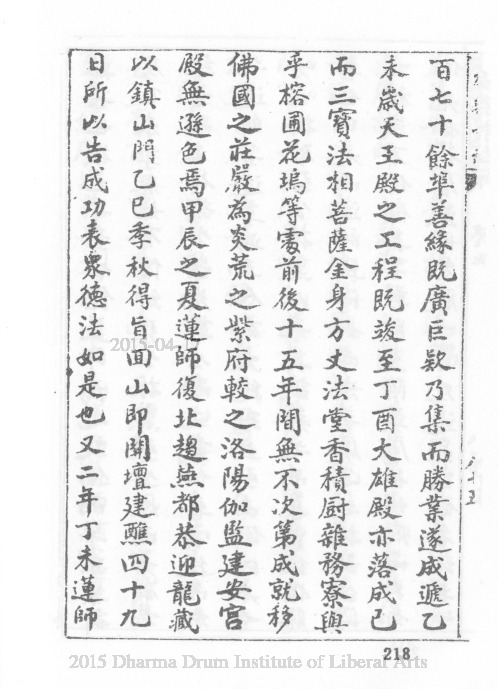 百七十餘埠善緣既廣巨欵乃集而勝業遂成遞乙
未歲天王殿之工程既竣至丁酉大雄殿亦落成已
而三寶法相菩薩金身方丈法堂香積厨雜務寮與
乎榕圃花塢等處前後十五年間無不次第成就移
佛國之莊嚴為炎荒之紫府較之洛陽伽監建安宮
殿無遜色焉甲辰之夏蓮師復北趨燕都恭迎龍藏
以鎮山門乙巳季秋得旨回山即開壇建醮四十九
日所以告成功表衆德法如是也又二年丁未蓮師
2015-04-1
218
2015 Dharma Drum Institute of Liberal Arts